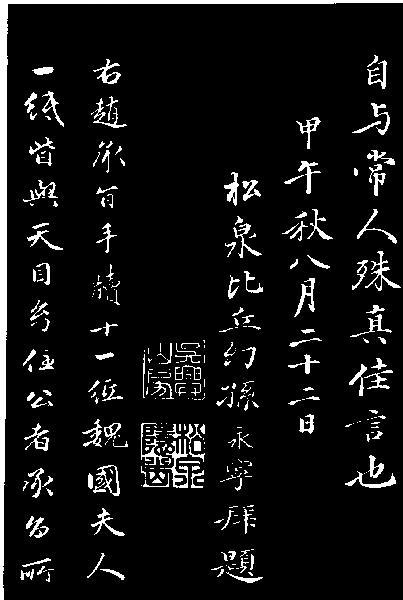 自与常人殊真佳言也
甲午秋八月二十二日
松泉比丘幻孫永寧拜題
右趙承旨手牘十一魏國夫人
一紙皆與天目幻住公者承旨所